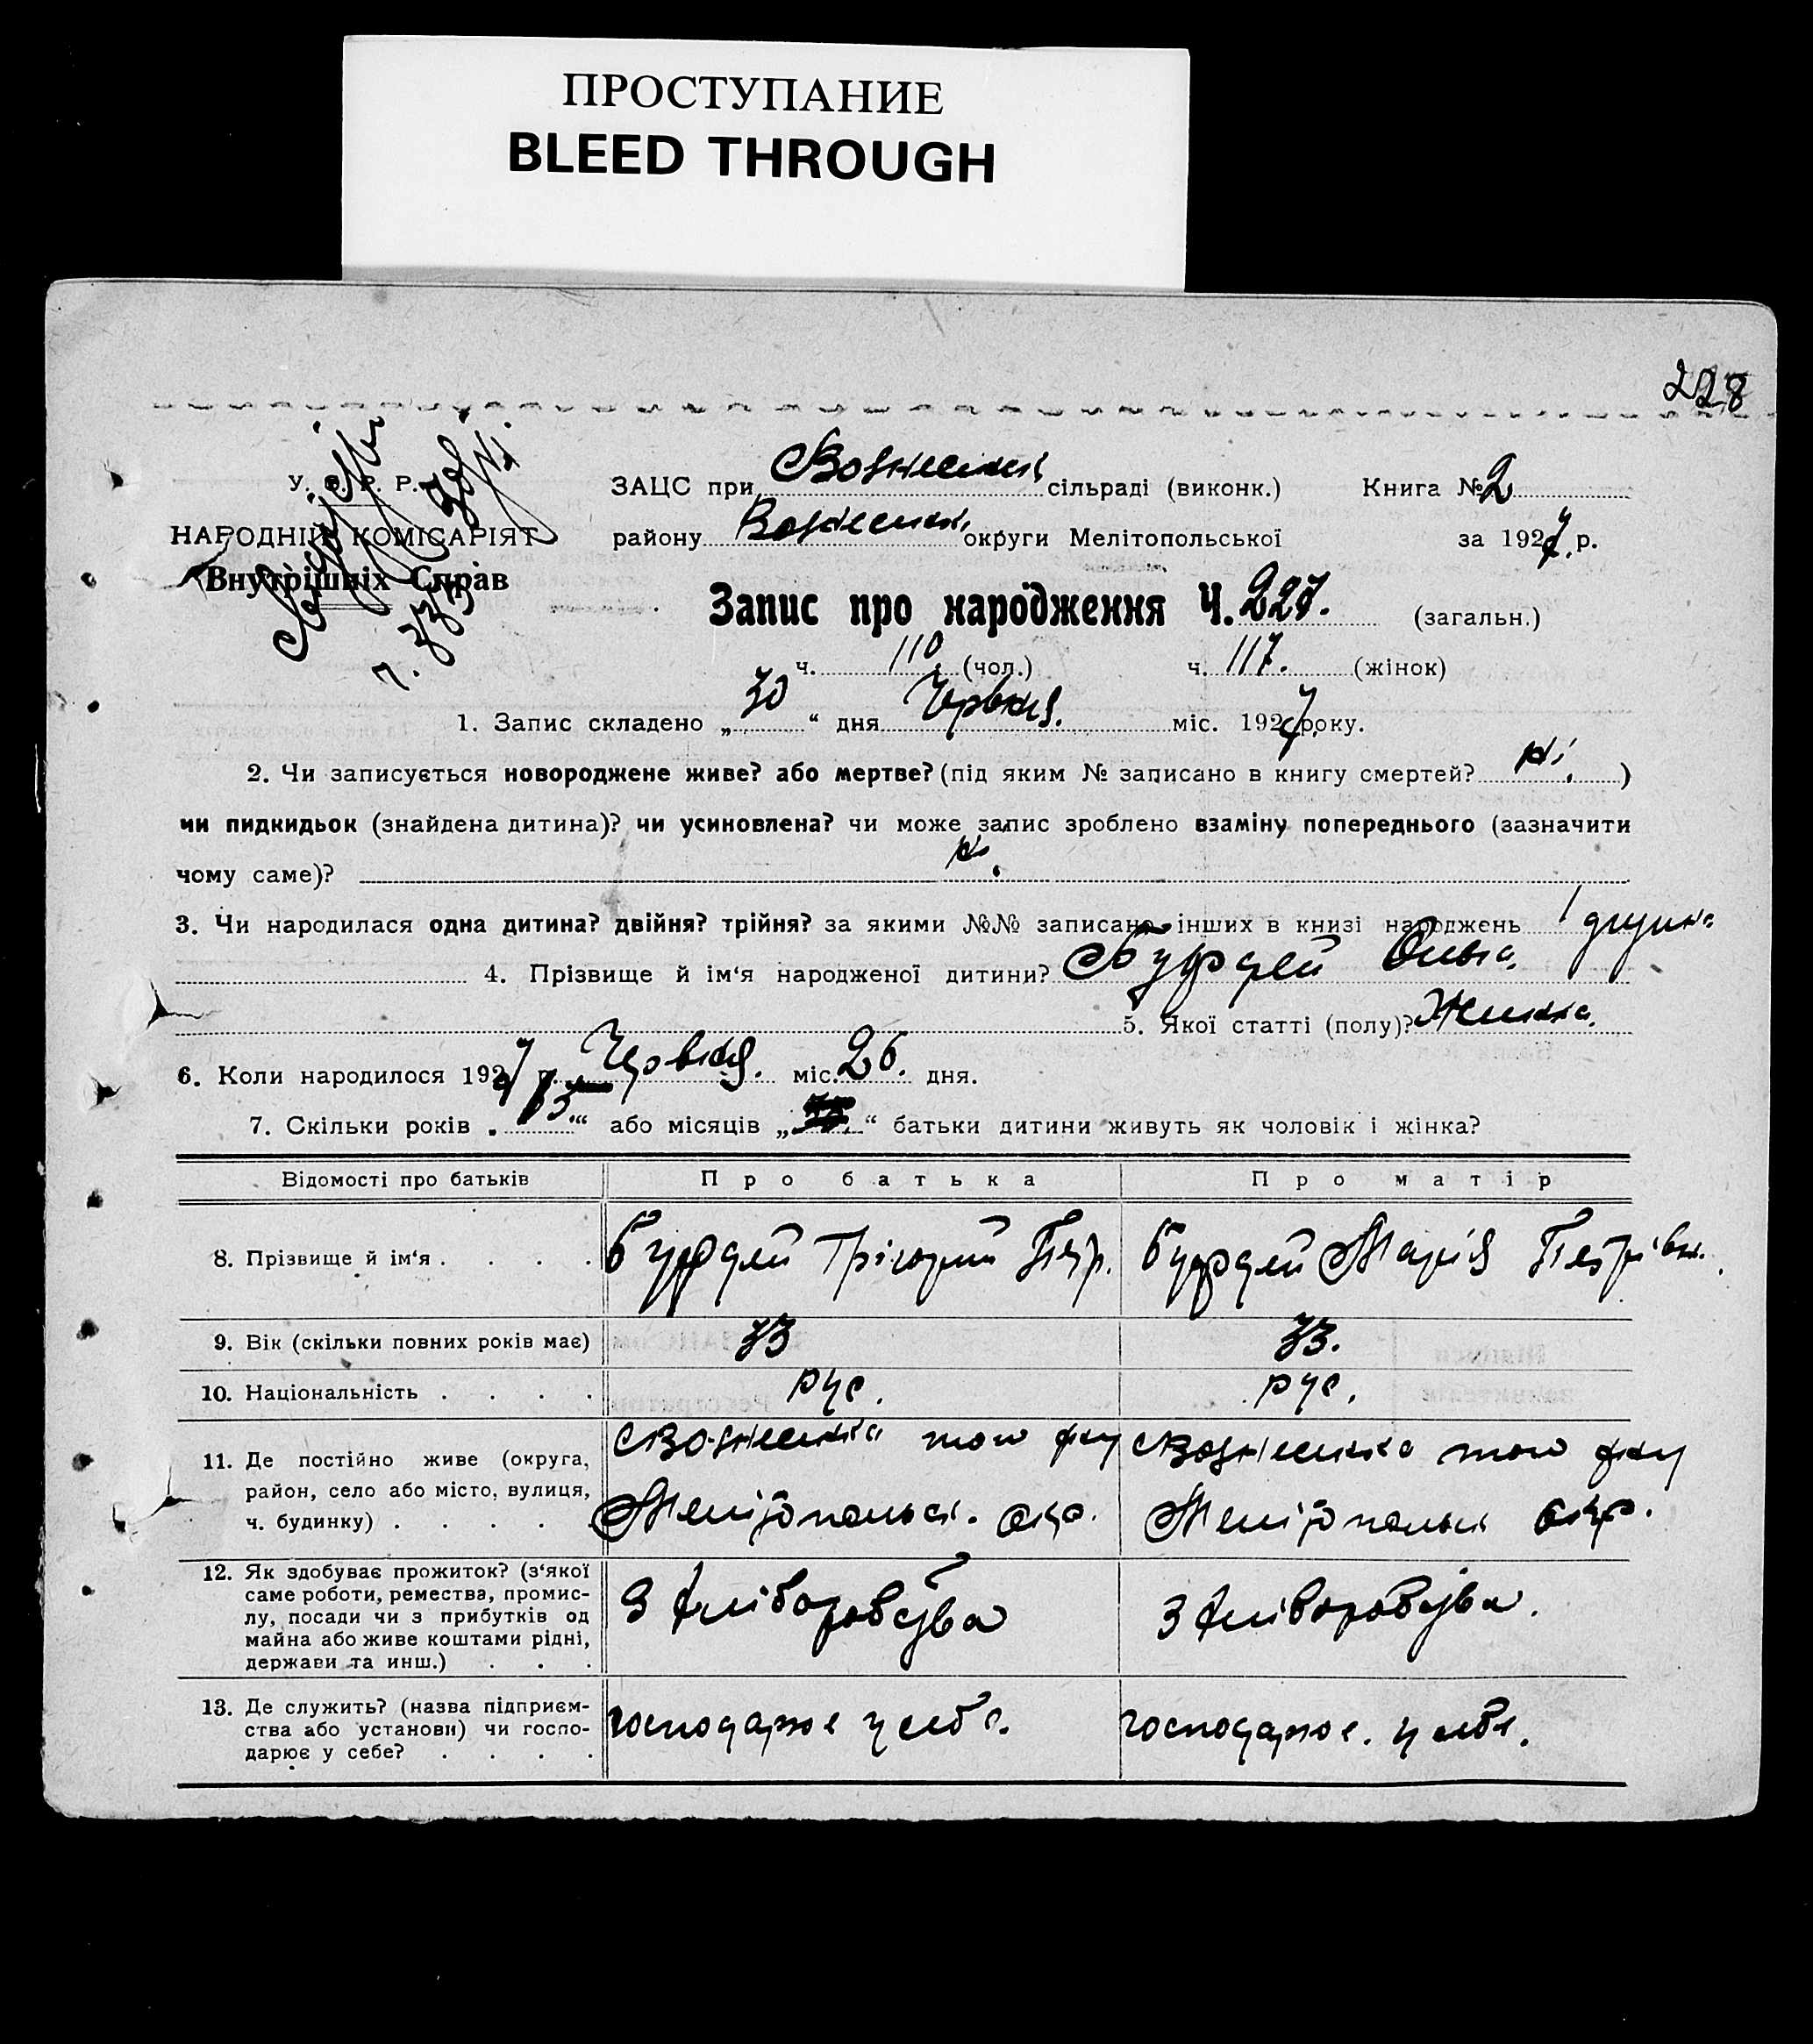 ПРОСТУПАНИЕ
BLEED THROUGH
228
У. С. Р. Р.
НАРОДНІЙ КОМІСАРІЯТ
Внутрішніх Справ
ЗАЦС при Вознесенк сільраді (виконк.) Книга № 2
району Вознесенк. округи Мелітопольської за 1927 р.
Запис про народження Ч. 227. (загальн.)
ч. 110 (чол.) ч. 117. (жінок)
1. Запис складено „ 30 “ дня Червня. міс. 1927 року.
2. Чи записується новороджене живе? або мертве? (під яким № записано в книгу смертей? ні. )
чи пидкидьок (знайдена дитина)? чи усиновлена? чи може запис зроблено взаміну попереднього (зазначити
чому саме)? ні.
3. Чи народилася одна дитина? двійня? трійня? за якими №№ записано інших в книзі народжень 1 дитина
4. Прізвище й ім‘я народженої дитини? Ольга.
5. Якої статті (полу)? Жинка.
6. Коли народилося 1927 р. Червня. міс. 26. дня.
7. Скільки років „ 15 “ або місяців „ “ батьки дитини живуть як чоловік і жінка?
Відомості про батьків Про батька Про матір
8. Прізвище й ім‘я . . . . Грігорий Петр. Марія Петрівн.
9. Вік (скільки повних років має) 33 33.
10. Національність . . . . рус. рус.
11. Де постійно живе (округа, с Вознесенка того рну с Вознесенка того рну
район, село або місто, вулиця,
ч. будинку) . . . . . Мелітопольск. окр. Мелітопольск окр.
12. Як здобуває прожиток? (з‘якої
саме роботи, ремества, промис-
лу, посади чи з прибутків од З хліборобства З хліборобства.
майна або живе коштами рідні,
держави та инш.) . . .
13. Де служить? (назва підприєм- господарює у себе. господарює. у себе.
ства або установи) чи госпо-
дарює у себе? . . . .